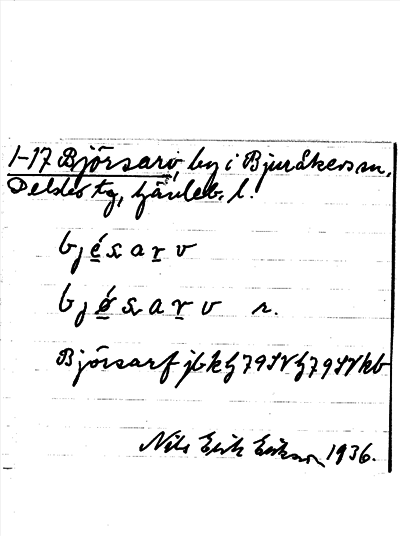 1-17 Björsarv, by i Bjuråkers sn,
Delsbo tg, Gävleb. l.
bjösarv
bjøsarv r.
Björsarf jbkh 79 79 kb
Nils Erik Erikson 1936.